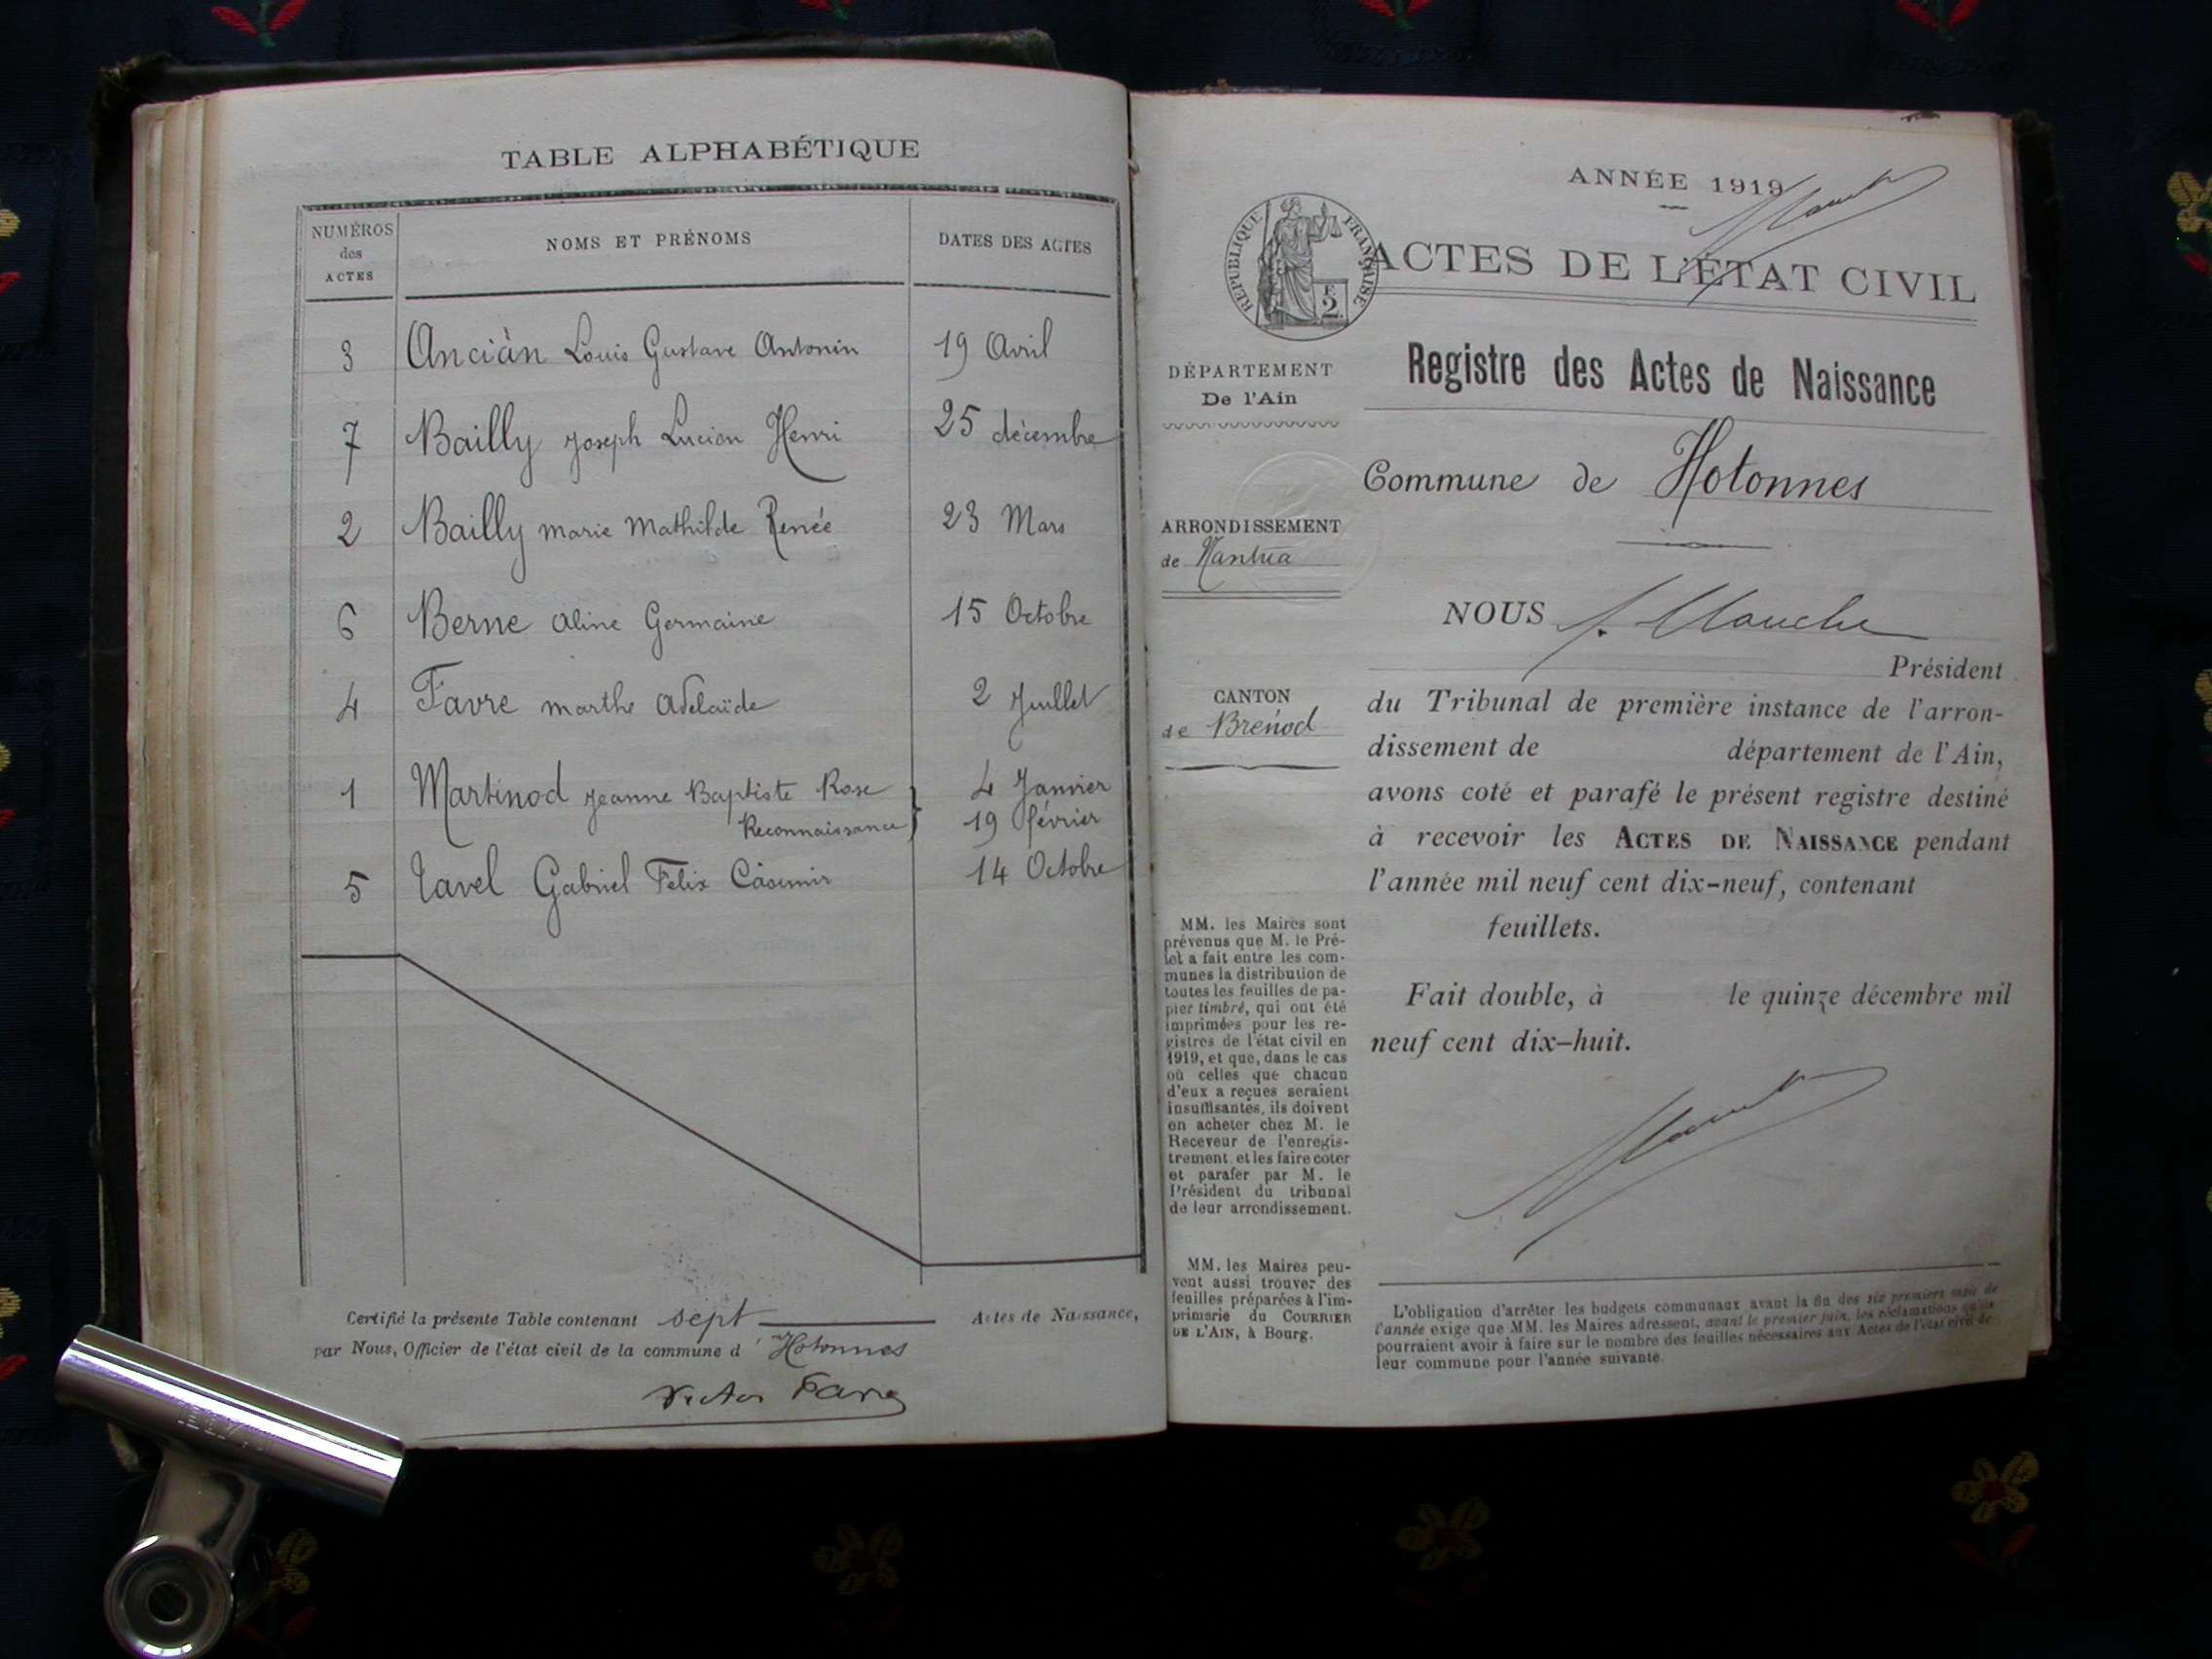 TABLE ALPHABÉTIQUE
NUMÉROS des ACTES
NOMS ET PRÉNOMS
DATES DES ACTES
3 Ancian Louis Gustave Antonin 19 Avril
7 Bailly Joseph Lucien Henri 25 décembre
2 Bailly Marie Mathilde Renée 23 Mars
6 Berne Aline Germaine 15 Octobre
4 Favre Marthe Adelaïde 2 Juillet
1 Martinod Jeanne Baptiste Rose 4 Janvier
Reconnaissance } 19 février
5 Tavel Gabriel Felix Casimir 14 Octobre
Certifié la présente Table contenant sept Actes de Naissance,
par Nous, Officier de l'état civil de la commune d'Hotonnes
Victor Favre
ANNÉE 1919
RÉPUBLIQUE FRANÇAISE
F.
2
ACTES DE L'ÉTAT CIVIL
Registre des Actes de Naissance
DÉPARTEMENT
De l'Ain
Commune de Hotonnes
ARRONDISSEMENT
de Nantua
NOUS
Président
CANTON
de Brénod
du Tribunal de première instance de l'arron-
dissement de département de l'Ain,
avons coté et parafé le présent registre destiné
à recevoir les ACTES DE NAISSANCE pendant
l'année mil neuf cent dix-neuf, contenant
feuillets.
Fait double, à le quinze décembre mil
neuf cent dix-huit.
MM. les Maires sont
prévenus que M. le Pré-
fet a fait entre les com-
munes la distribution de
toutes les feuilles de pa-
pier timbré, qui ont été
imprimées pour les re-
gistres de l'état civil en
1919, et que, dans le cas
où celles que chacun
d'eux a reçues seraient
insuffisantes, ils doivent
en acheter chez M. le
Receveur de l'enregis-
trement, et les faire coter
et parafer par M. le
Président du tribunal
de leur arrondissement.
MM. les Maires peu-
vent aussi trouver des
feuilles préparées à l'im-
primerie du COURRIER
DE L'AIN, à Bourg.
L'obligation d'arrêter les budgets communaux avant la fin des six premiers mois de
l'année exige que MM. les Maires adressent, avant le premier juin, les réclamations qu'ils
pourraient avoir à faire sur le nombre des feuilles nécessaires aux Actes de l'état civil de
leur commune pour l'année suivante.